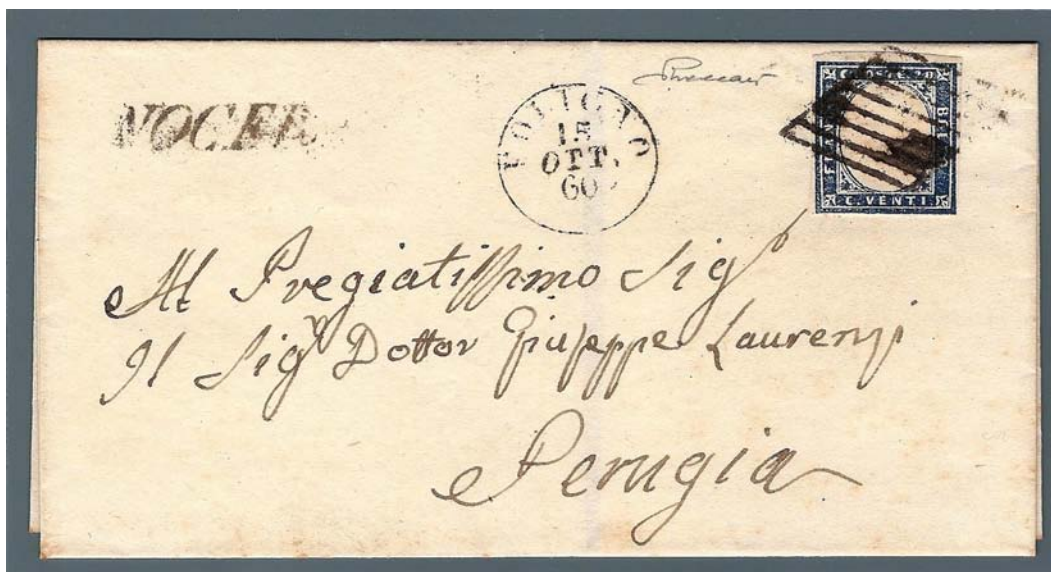 NOCERA
FOLIGNO
15
OTT.
60
C. VENTI
Al Pregiatissimo Sigr
Il Sigr Dottor Giuseppe Laurenzj
Perugia